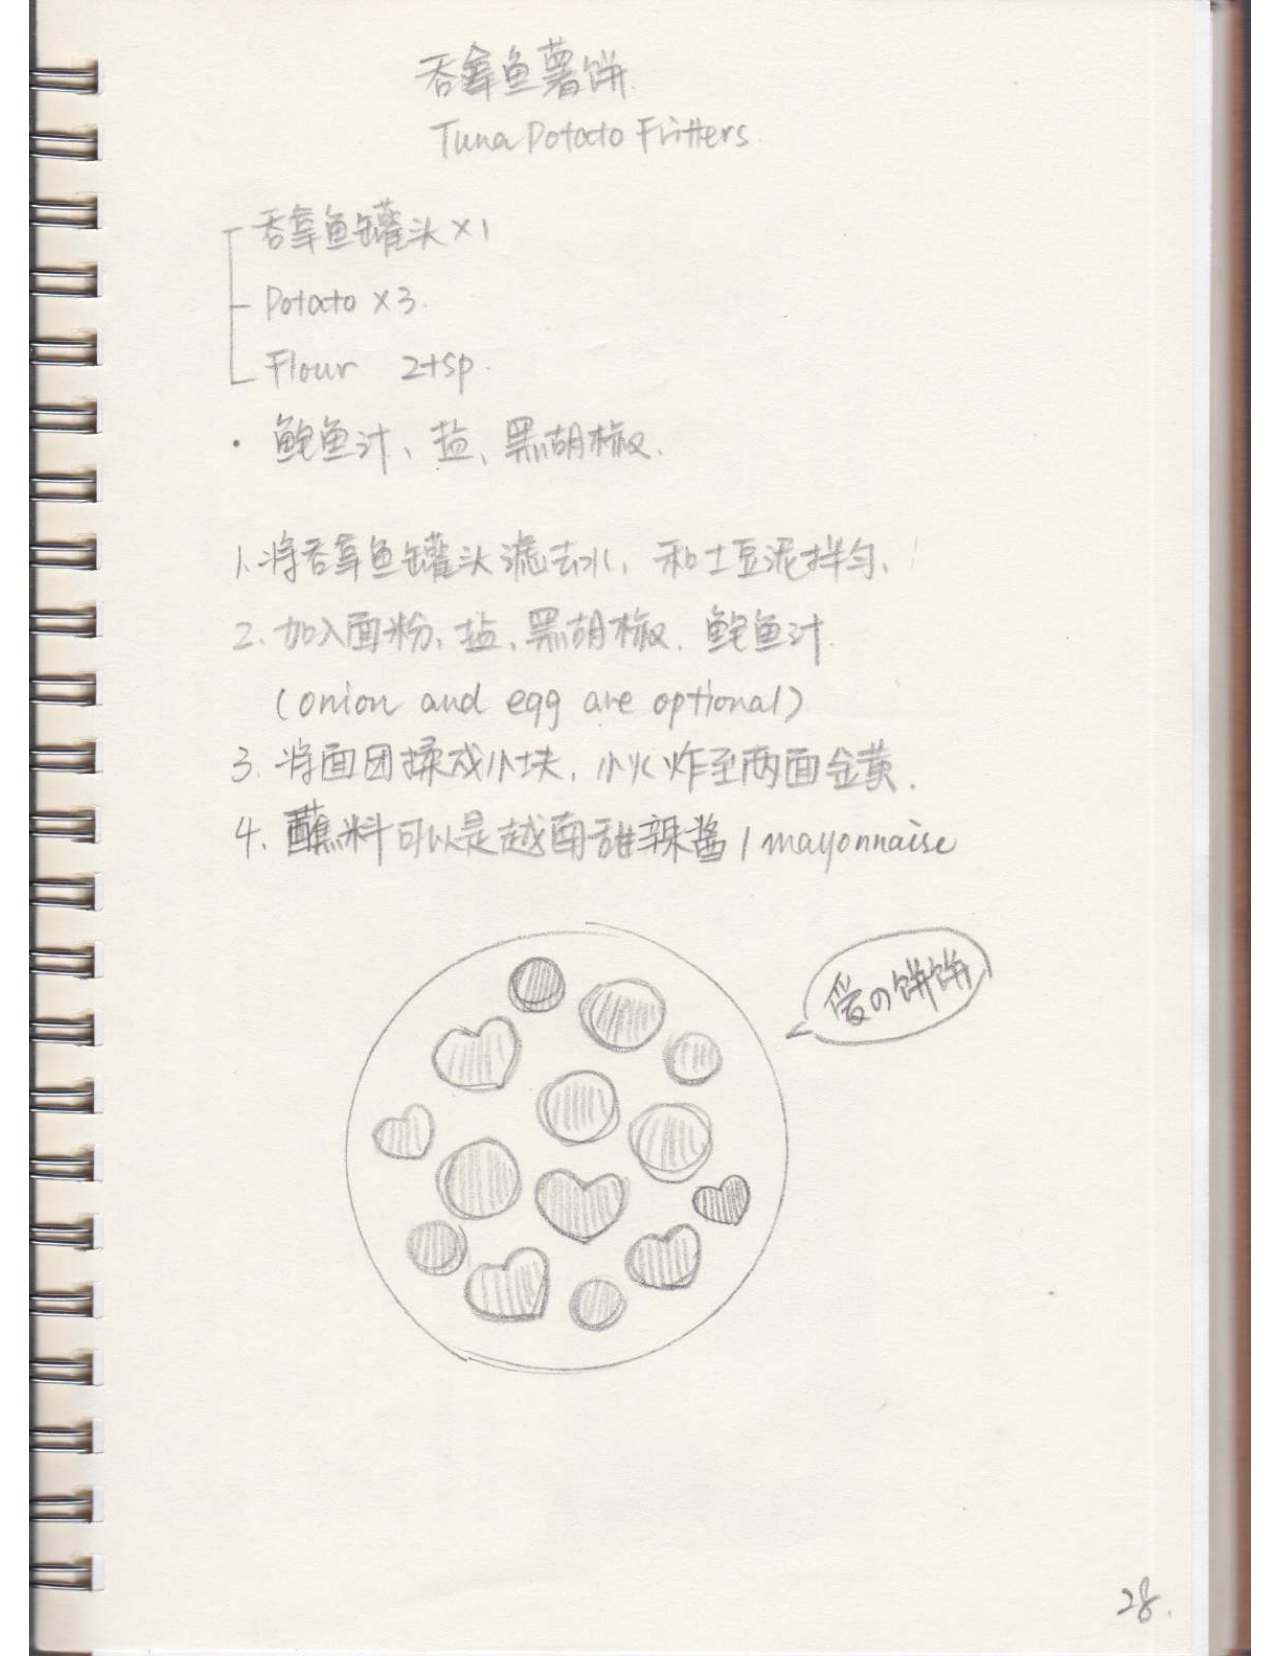 吞拿鱼薯饼.
Tuna Potato Fritters.
吞拿鱼罐头 ×1
Potato ×3.
Flour 2tsp.
· 鲍鱼汁、盐、黑胡椒.
1. 将吞拿鱼罐头滤去水, 和土豆泥拌匀.
2. 加入面粉, 盐, 黑胡椒. 鲍鱼汁.
(onion and egg are optional)
3. 将面团揉成小块, 小火炸至两面金黄.
4. 蘸料可以是越南甜辣酱 / mayonnaise
爱の饼饼
28.